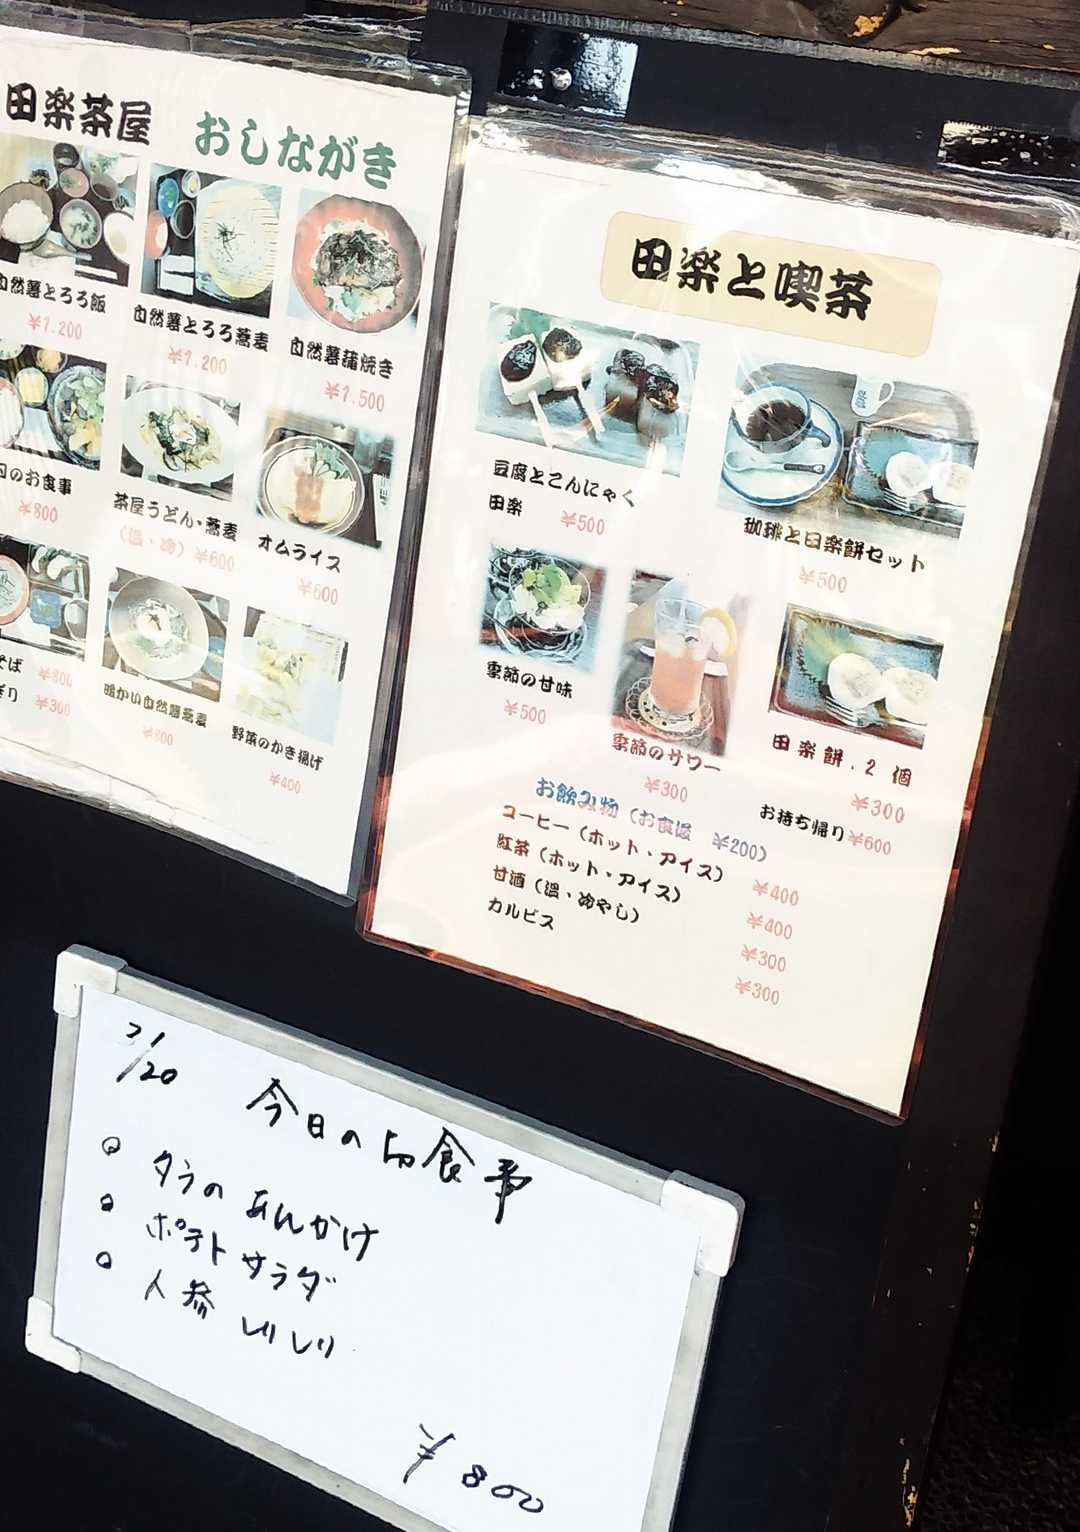 田楽茶屋 おしながき
自然薯とろろ飯
¥1.200
自然薯とろろ蕎麦
¥1.200
自然薯蒲焼き
¥1.500
のお食事
¥800
茶屋うどん・蕎麦
(温・冷) ¥600
オムライス
¥600
そば ¥800
ぎり ¥300
暖かい自然薯蕎麦
¥800
野菜のかき揚げ
¥400
田楽と喫茶
豆腐とこんにゃく
田楽 ¥500
珈琲と田楽餅セット
¥500
季節の甘味
¥500
季節のサワー
¥300
田楽餅.2個
¥300
お持ち帰り¥600
お飲み物(お食後 ¥200)
コーヒー(ホット・アイス) ¥400
紅茶(ホット・アイス) ¥400
甘酒(温・冷やし) ¥300
カルピス ¥300
2/20 今日のお食事
○ タラの あんかけ
○ ポテトサラダ
○ 人参 しりしり
¥800